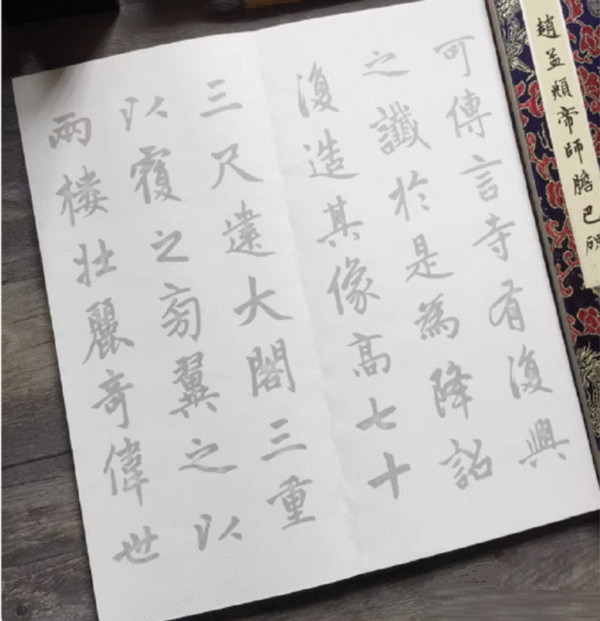 趙孟頫帝師膽巴碑
可傳言寺有復興
之讖於是為降詔
復造其像高七十
三尺建大閣三重
以覆之旁翼之以
兩樓壯麗奇偉世